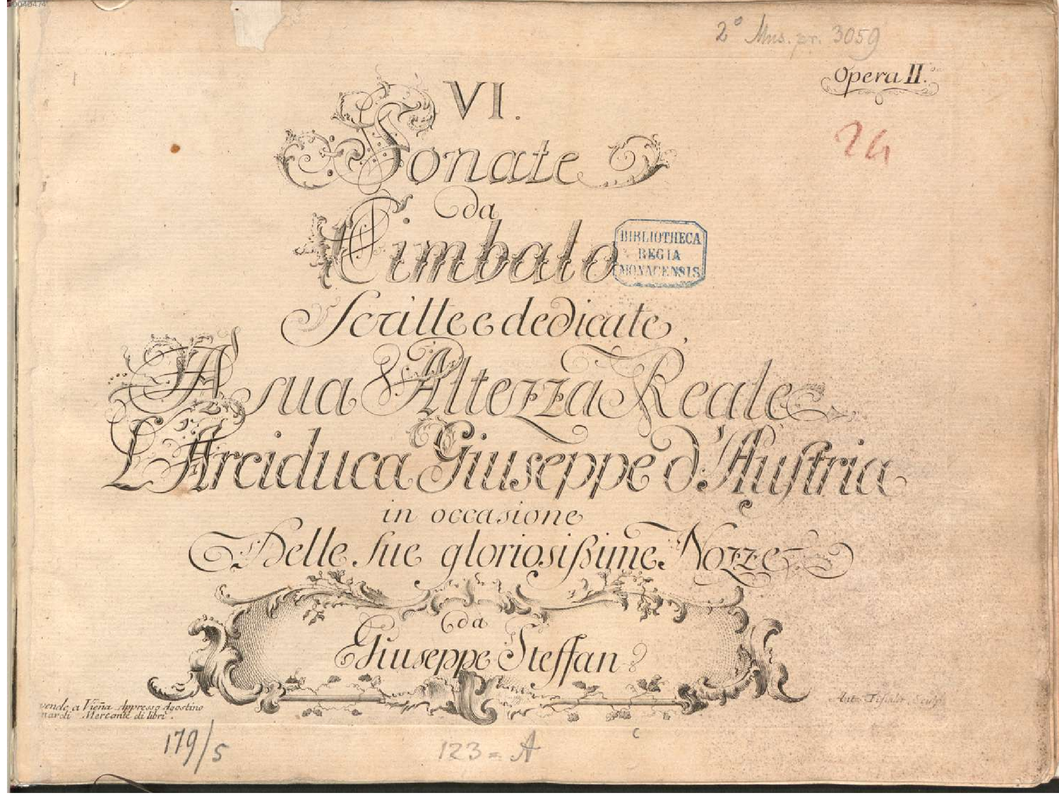 2° Mus. pr. 3059
Opera II.
24
VI.
Sonate
da
Cimbalo
BIBLIOTHECA
REGIA
MONACENSIS
Scritte e dedicate
A sua Altezza Reale
L'Arciduca Giuseppe d'Austria
in occasione
Delle sue gloriosissime Nozze
da
Giuseppe Steffan
vende a Vieña appresso Agostino
nardi Mercante di libri.
179/5
123-A